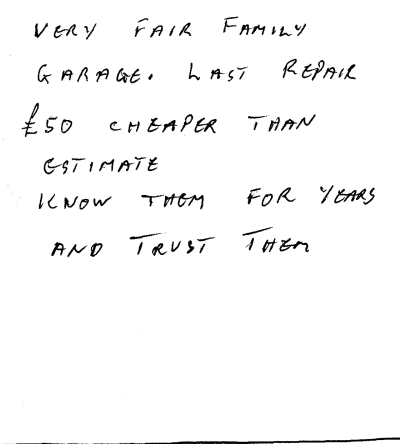 VERY FAIR FAMILY
GARAGE. LAST REPAIR
£50 CHEAPER THAN
ESTIMATE
KNOW THEM FOR YEARS
AND TRUST THEM